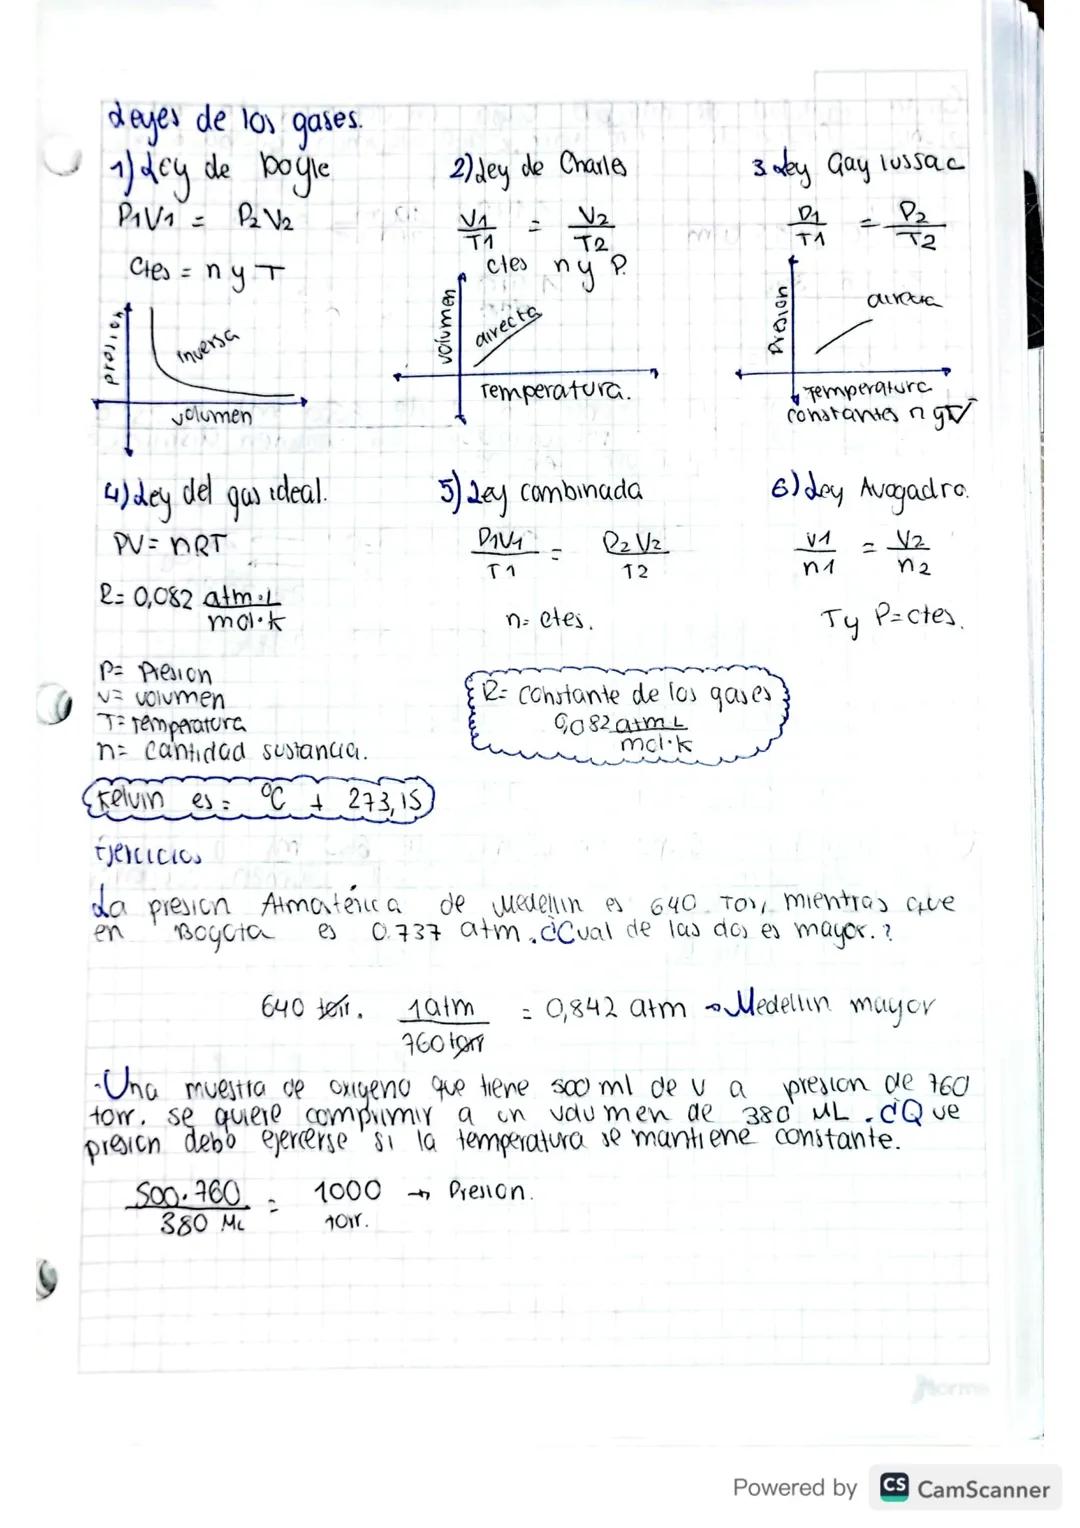 Leyes de los gases.
1) Ley de boyle
P1V1 = P2V2
Ctes = n y T
presion
inversa
volumen
2) Ley de Charles
V1/T1 = V2/T2
ctes n y P.
volumen
directa
Temperatura.
3. Ley Gay lussac
P1/T1 = P2/T2
Presion
directa
Temperatura
constantes n y V
4) Ley del gas ideal.
PV = nRT
R = 0,082 atm·L/mol·k
P = Presion
V = volumen
T = Temperatura
n = cantidad sustancia.
5) Ley combinada
P1V1/T1 = P2V2/T2
n = ctes.
6) Ley Avogadro.
V1/n1 = V2/n2
T y P = ctes.
R = constante de los gases
0,082 atm L/mol·k
Kelvin es = °C + 273,15
Ejercicios
La presion Atmosférica de Medellin es 640 Torr, mientras que
en Bogota es 0.737 atm. ¿Cual de las dos es mayor.?
640 torr. 1atm/760 torr = 0,842 atm → Medellin mayor
- Una muestra de oxigeno que tiene 500 ml de v a presion de 760
torr. se quiere comprimir a un volumen de 380 ML. ¿Que
presion debo ejercerse si la temperatura se mantiene constante.
500·760/380 ML = 1000 torr. → Presion.
Norma
Powered by CS CamScanner